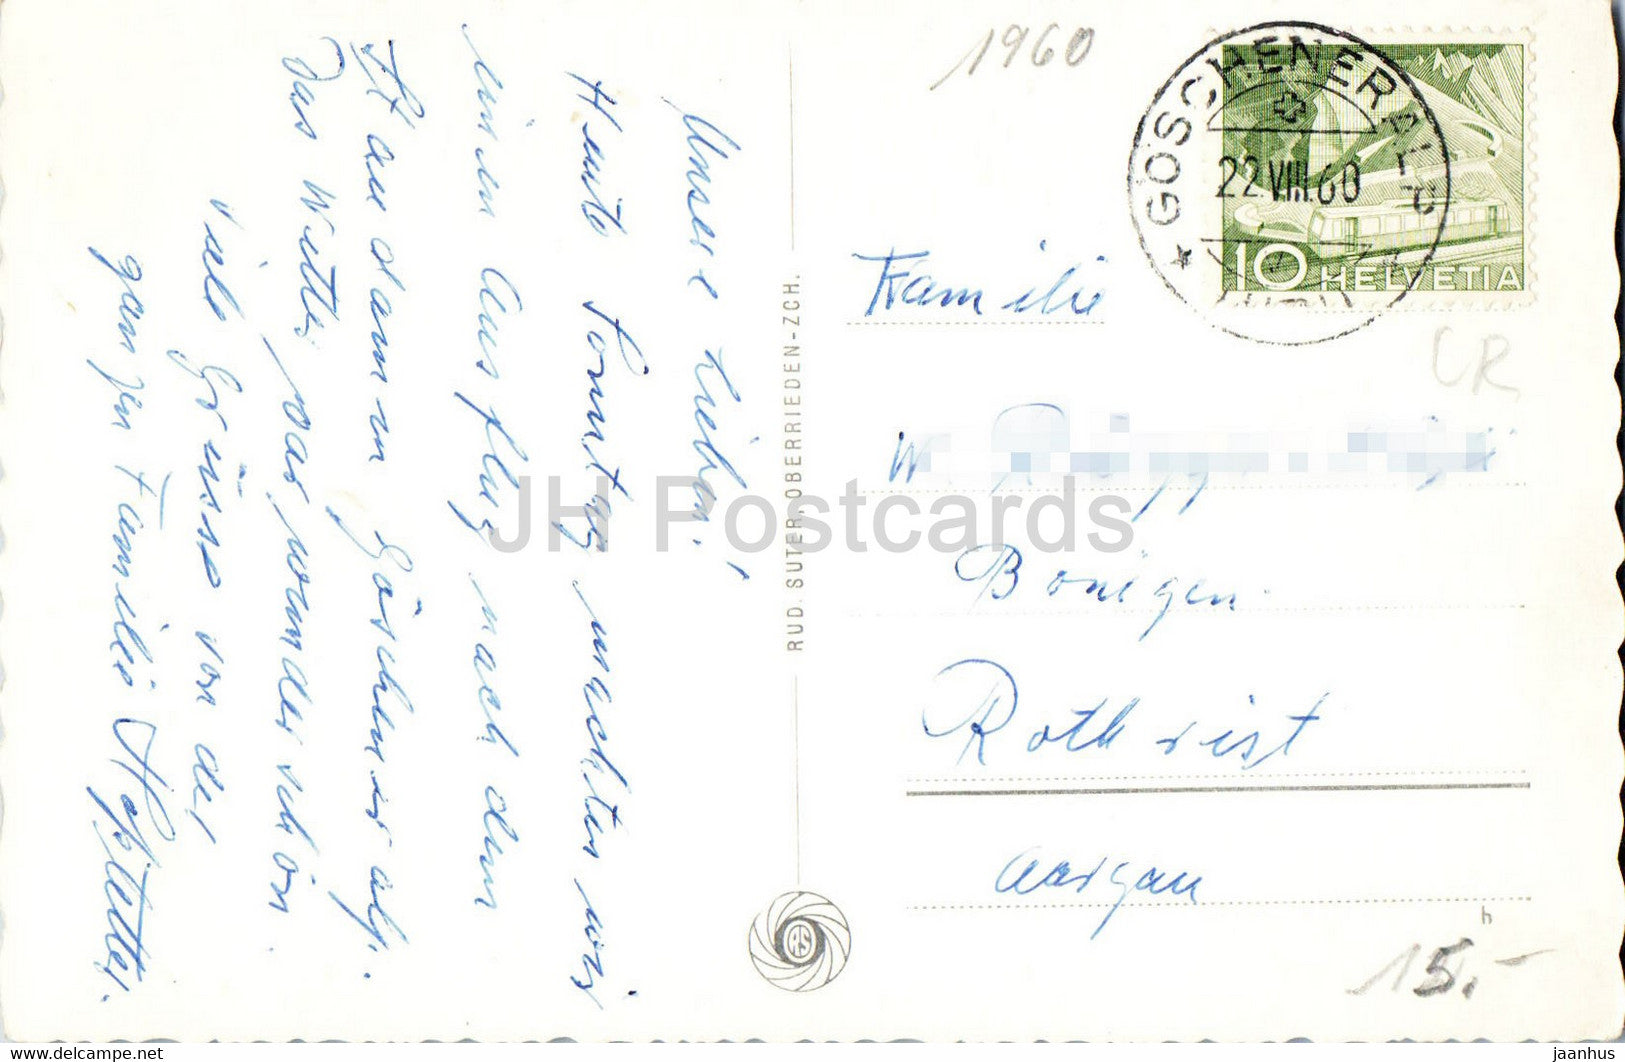 1960
GÖSCHENER ALP
22.VIII.60
(URI)
10 HELVETIA
CR
Unsere Lieben!
Heute Sonntag machten wir
einen Ausflug nach dem
Staudamm Göscheneralp.
Das Wetter war wunderschön
Viele Grüsse von der
ganzen Familie Hofstetter.
RUD. SUTER, OBERRIEDEN-ZCH.
RS
Familie
W.
Bonigen
Rothrist
Aargau
h
15.-
JH Postcards
jaanhus